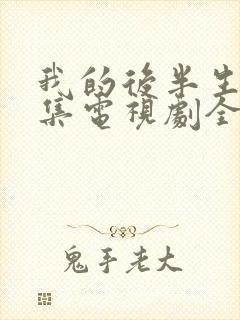 我的後半生
集電視劇全
鬼手老大